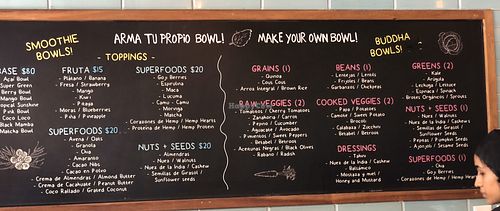 ARMA TU PROPIO BOWL!
MAKE YOUR OWN BOWL!
SMOOTHIE BOWL!
- TOPPINGS -
BUDDHA BOWLS!
BASE $80
Açaí Bowl
Super Green
Berry Bowl
Mango Bowl
Tropical Sunshine
Coco Loco
Black Mamba
Matcha Bowl
FRUTA $15
- Plátano / Banana
- Fresa / Strawberry
- Mango
- Kiwi
- Pitaya
- Moras / Blueberries
- Piña / Pineapple
SUPERFOODS $20
- Avena / Oats
- Granola
- Chia
- Amaranto
- Cacao Nibs
- Cacao en Polvo
- Crema de Almendras / Almond Butter
- Crema de Cacahuate / Peanut Butter
- Coco Rallado / Grated Coconut
SUPERFOODS $20
- Goji Berries
- Espirulina
- Maca
- Lucuma
- Camu - Camu
- Moringa
- Matcha
- Corazones de Hemp / Hemp Hearts
- Proteina de Hemp / Hemp Protein
NUTS + SEEDS $20
- Almendras
- Nuez / Walnuts
- Nuez de la India / Cashew
- Semillas de Girasol / Sunflower seeds
GRAINS (1)
- Quinoa
- Cous Cous
- Arroz Integral / Brown Rice
RAW VEGGIES (2)
- Tomatitos / Cherry Tomatoes
- Zanahoria / Carrot
- Pepino / Cucumber
- Aguacate / Avocado
- Pimientos / Sweet Peppers
- Betabel / Beetroot
- Aceitunas Negras / Black Olives
- Rabano / Radish
BEANS (1)
- Lentejas / Lentils
- Frijoles / Beans
- Garbanzos / Chickpeas
COOKED VEGGIES (2)
- Papa / Potatoes
- Camote / Sweet Potato
- Brocoli
- Calabaza / Zucchini
- Betabel / Beetroot
DRESSINGS
- Tahini
- Nuez de la India / Cashew
- Balsámico
- Mostaza y miel / Honey and Mustard
GREENS (2)
- Kale
- Arúgula
- Lechuga / Lettuce
- Espinaca / Spinach
- Brotes Organicos / Sprouts
NUTS + SEEDS (1)
- Nuez / Walnuts
- Nuez de la India / Cashews
- Semillas de Girasol / Sunflower Seeds
- Pepitas / Pumpkin Seeds
- Ajonjolí / Sesame Seeds
SUPERFOODS (1)
- Chia
- Goji Berries
- Corazones de Hemp / Hemp Hearts